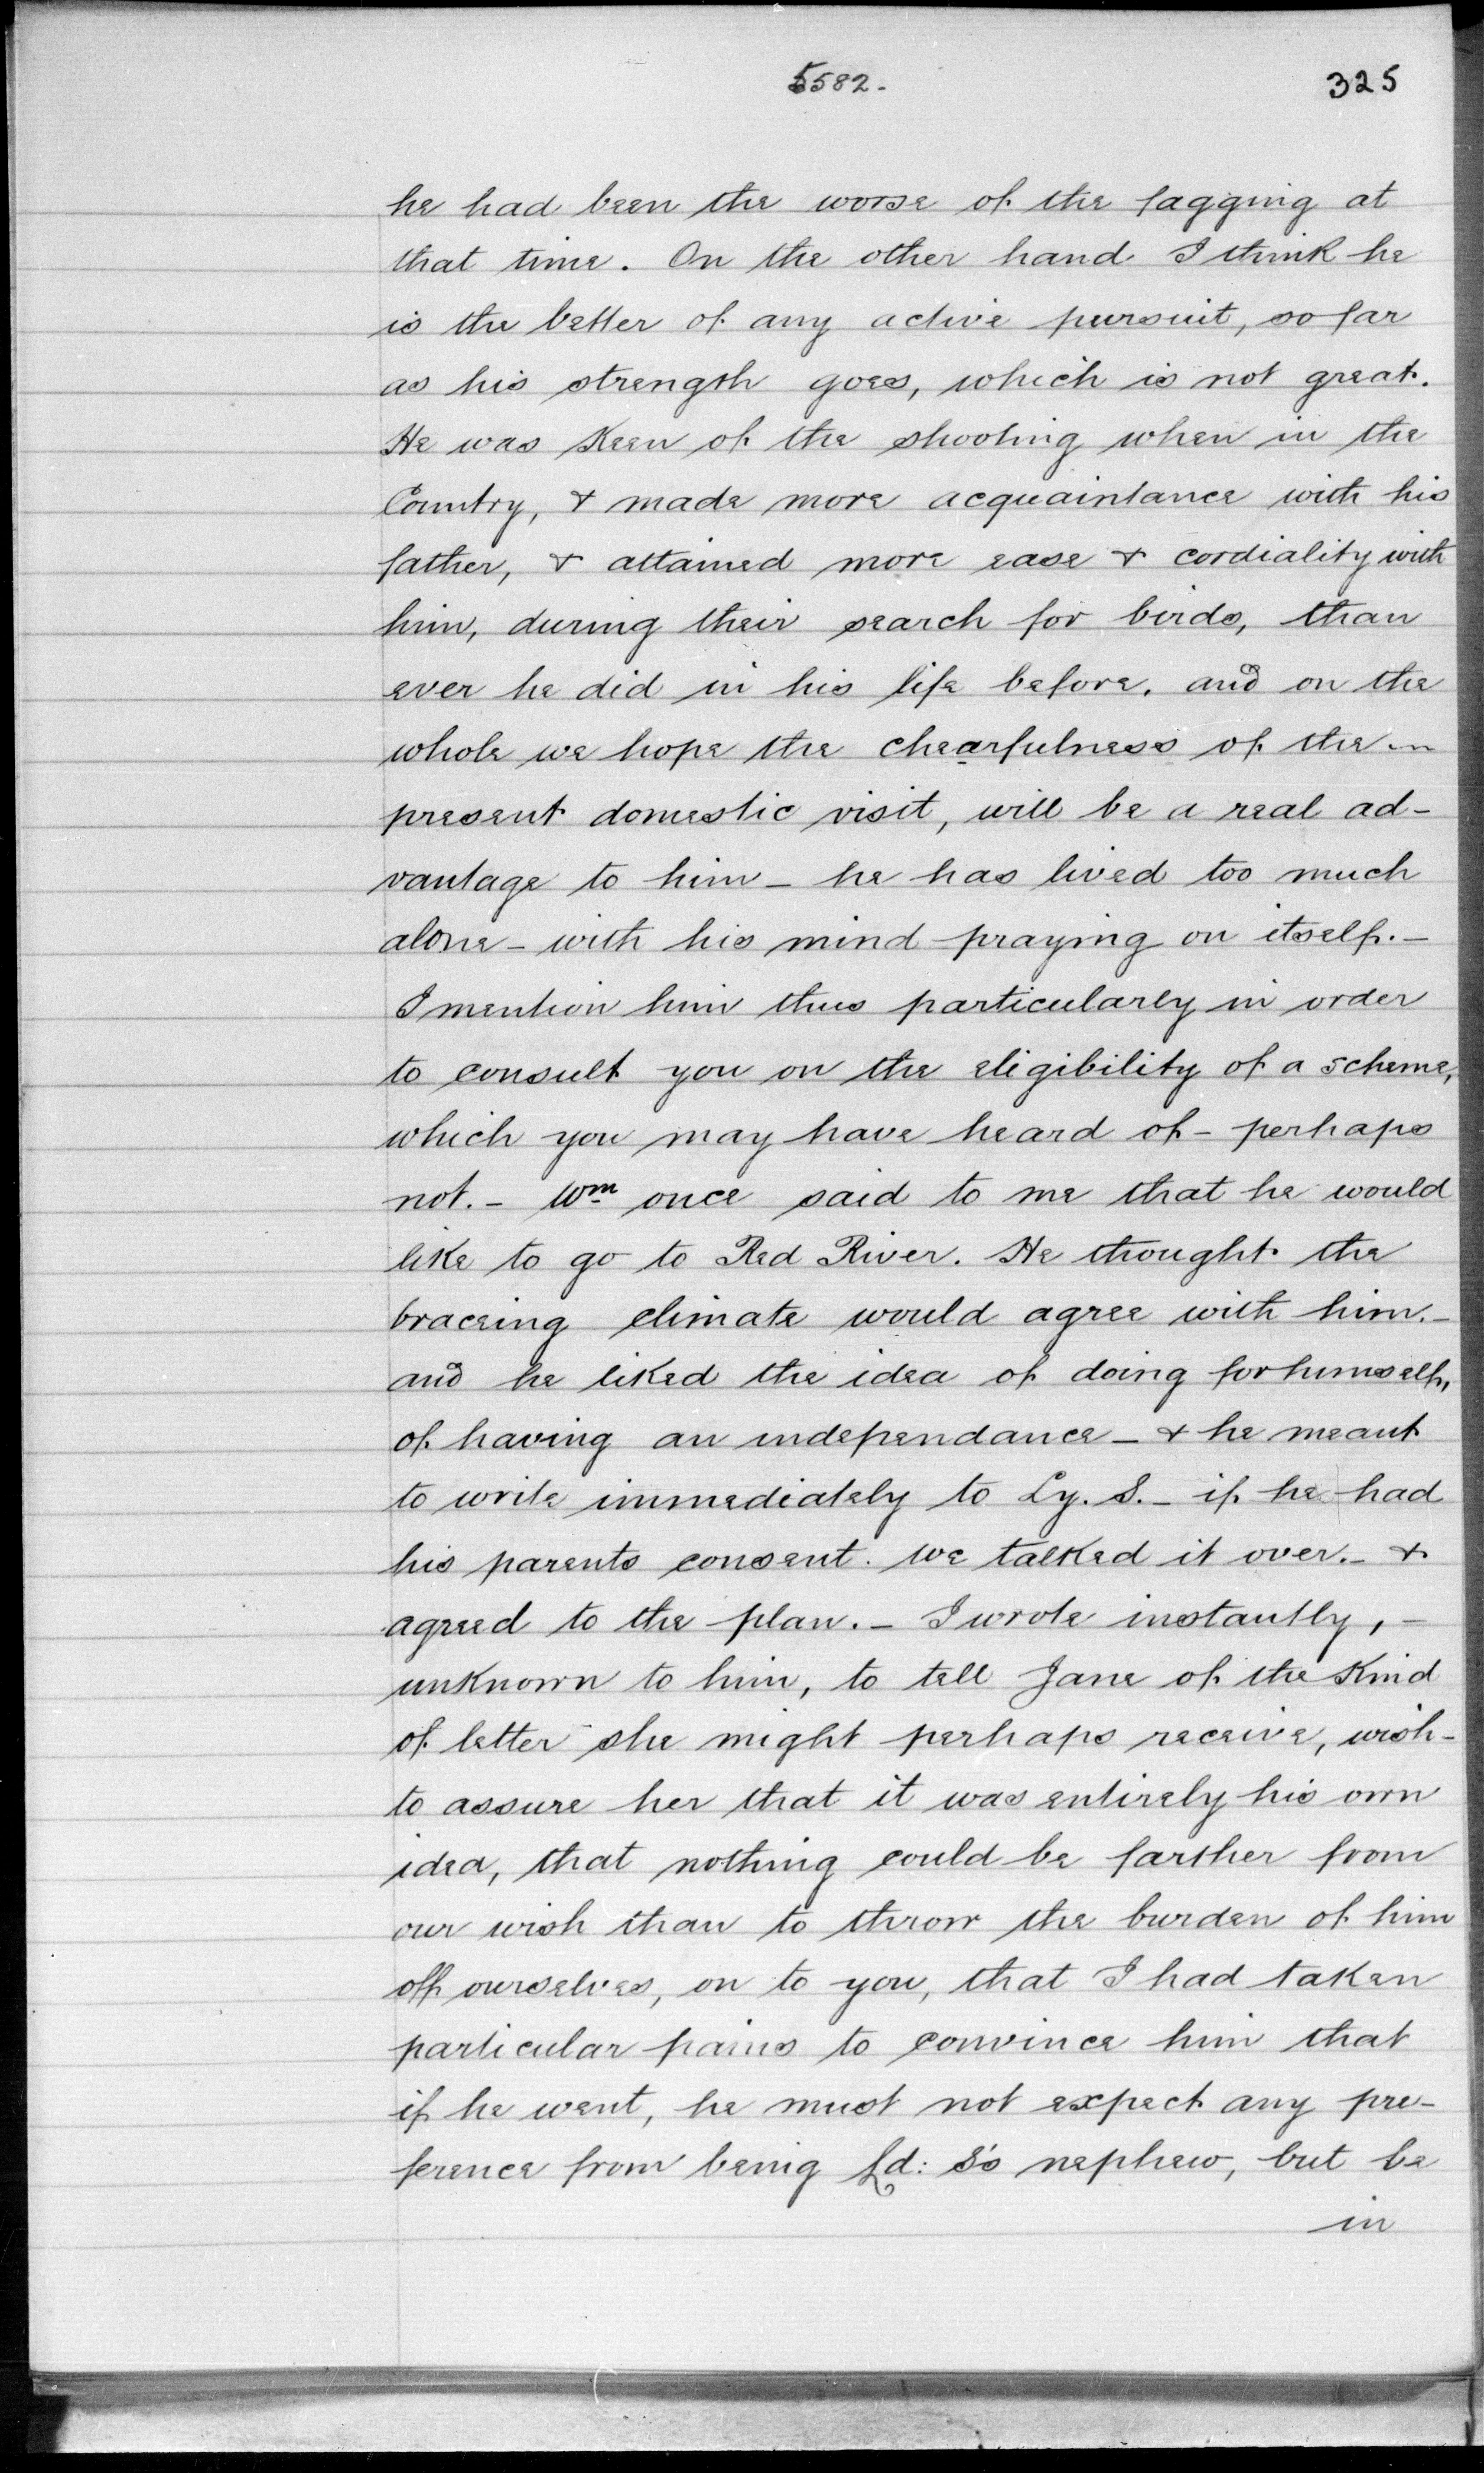 5582.
325
he had been the worse of the fagging at
that time. On the other hand I think he
is the better of any active pursuit, so far
as his strength goes, which is not great.
He was Keen of the shooting when in the
Country, & made more acquaintance with his
father, & attained more ease & cordiality with
him, during their search for birds, than
ever he did in his life before, and on the
whole we hope the chearfulness of the
present domestic visit, will be a real ad-
vantage to him - he has lived too much
alone - with his mind praying on itself. -
I mention him thus particularly in order
to consult you on the eligibility of a scheme,
which you may have heard of - perhaps
not. - Wm once said to me that he would
like to go to Red River. He thought the
braceing climate would agree with him. -
and he liked the idea of doing for himself,
of having an independance - & he meant
to write immediately to Ly. S. - if he had
his parents consent. We talked it over. - &
agreed to the plan. - I wrote instantly, -
unknown to him, to tell Jane of the Kind
of letter she might perhaps receive, wish-
to assure her that it was entirely his own
idea, that nothing could be farther from
our wish than to throw the burden of him
off ourselves, on to you, that I had taken
particular pains to convince him that
if he went, he must not expect any pre-
ference from being Ld: S's nephew, but be
in